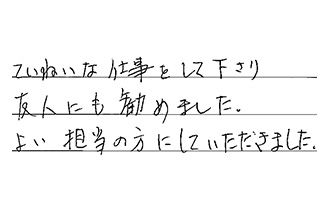 ていねいな仕事をして下さり
友人にも勧めました。
よい担当の方にしていただきました。